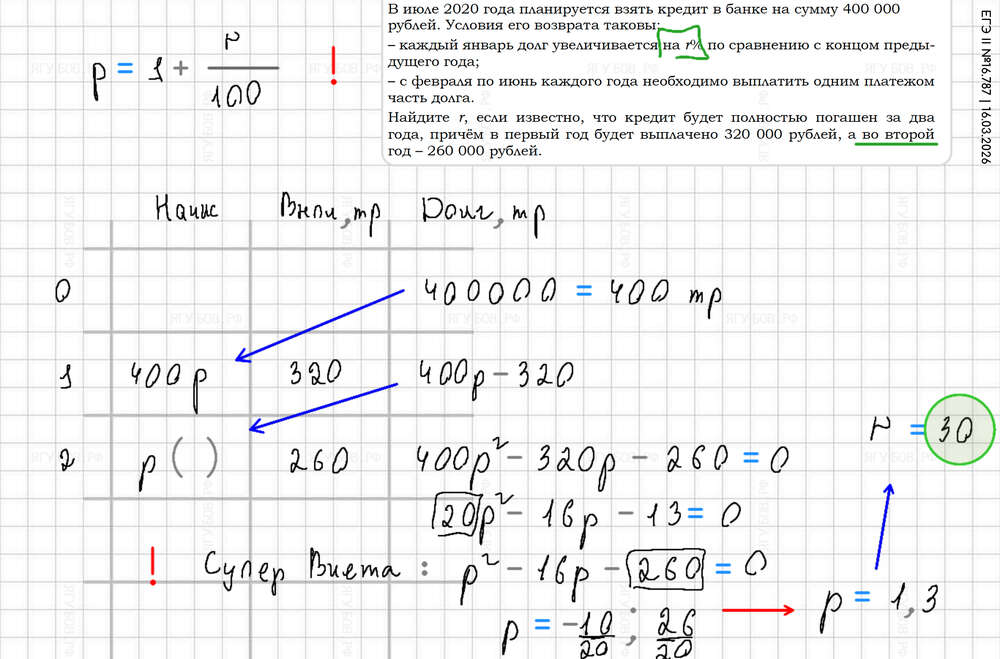 В июле 2020 года планируется взять кредит в банке на сумму 400 000
рублей. Условия его возврата таковы:
– каждый январь долг увеличивается на r% по сравнению с концом преды-
дущего года;
– с февраля по июнь каждого года необходимо выплатить одним платежом
часть долга.
Найдите r, если известно, что кредит будет полностью погашен за два
года, причём в первый год будет выплачено 320 000 рублей, а во второй
год – 260 000 рублей.
ЕГЭ II №16.787 | 16.03.2026
p = 1 + r/100 !
Начис Выпл, тр Долг, тр
0 400000 = 400 тр
1 400p 320 400p – 320
2 p ( ) 260 400p² – 320p – 260 = 0
20p² – 16p – 13 = 0
! Супер Виета : p² – 16p – 260 = 0
p = –10/20 ; 26/20
p = 1,3
r = 30
ЯГУБОВ.РФ